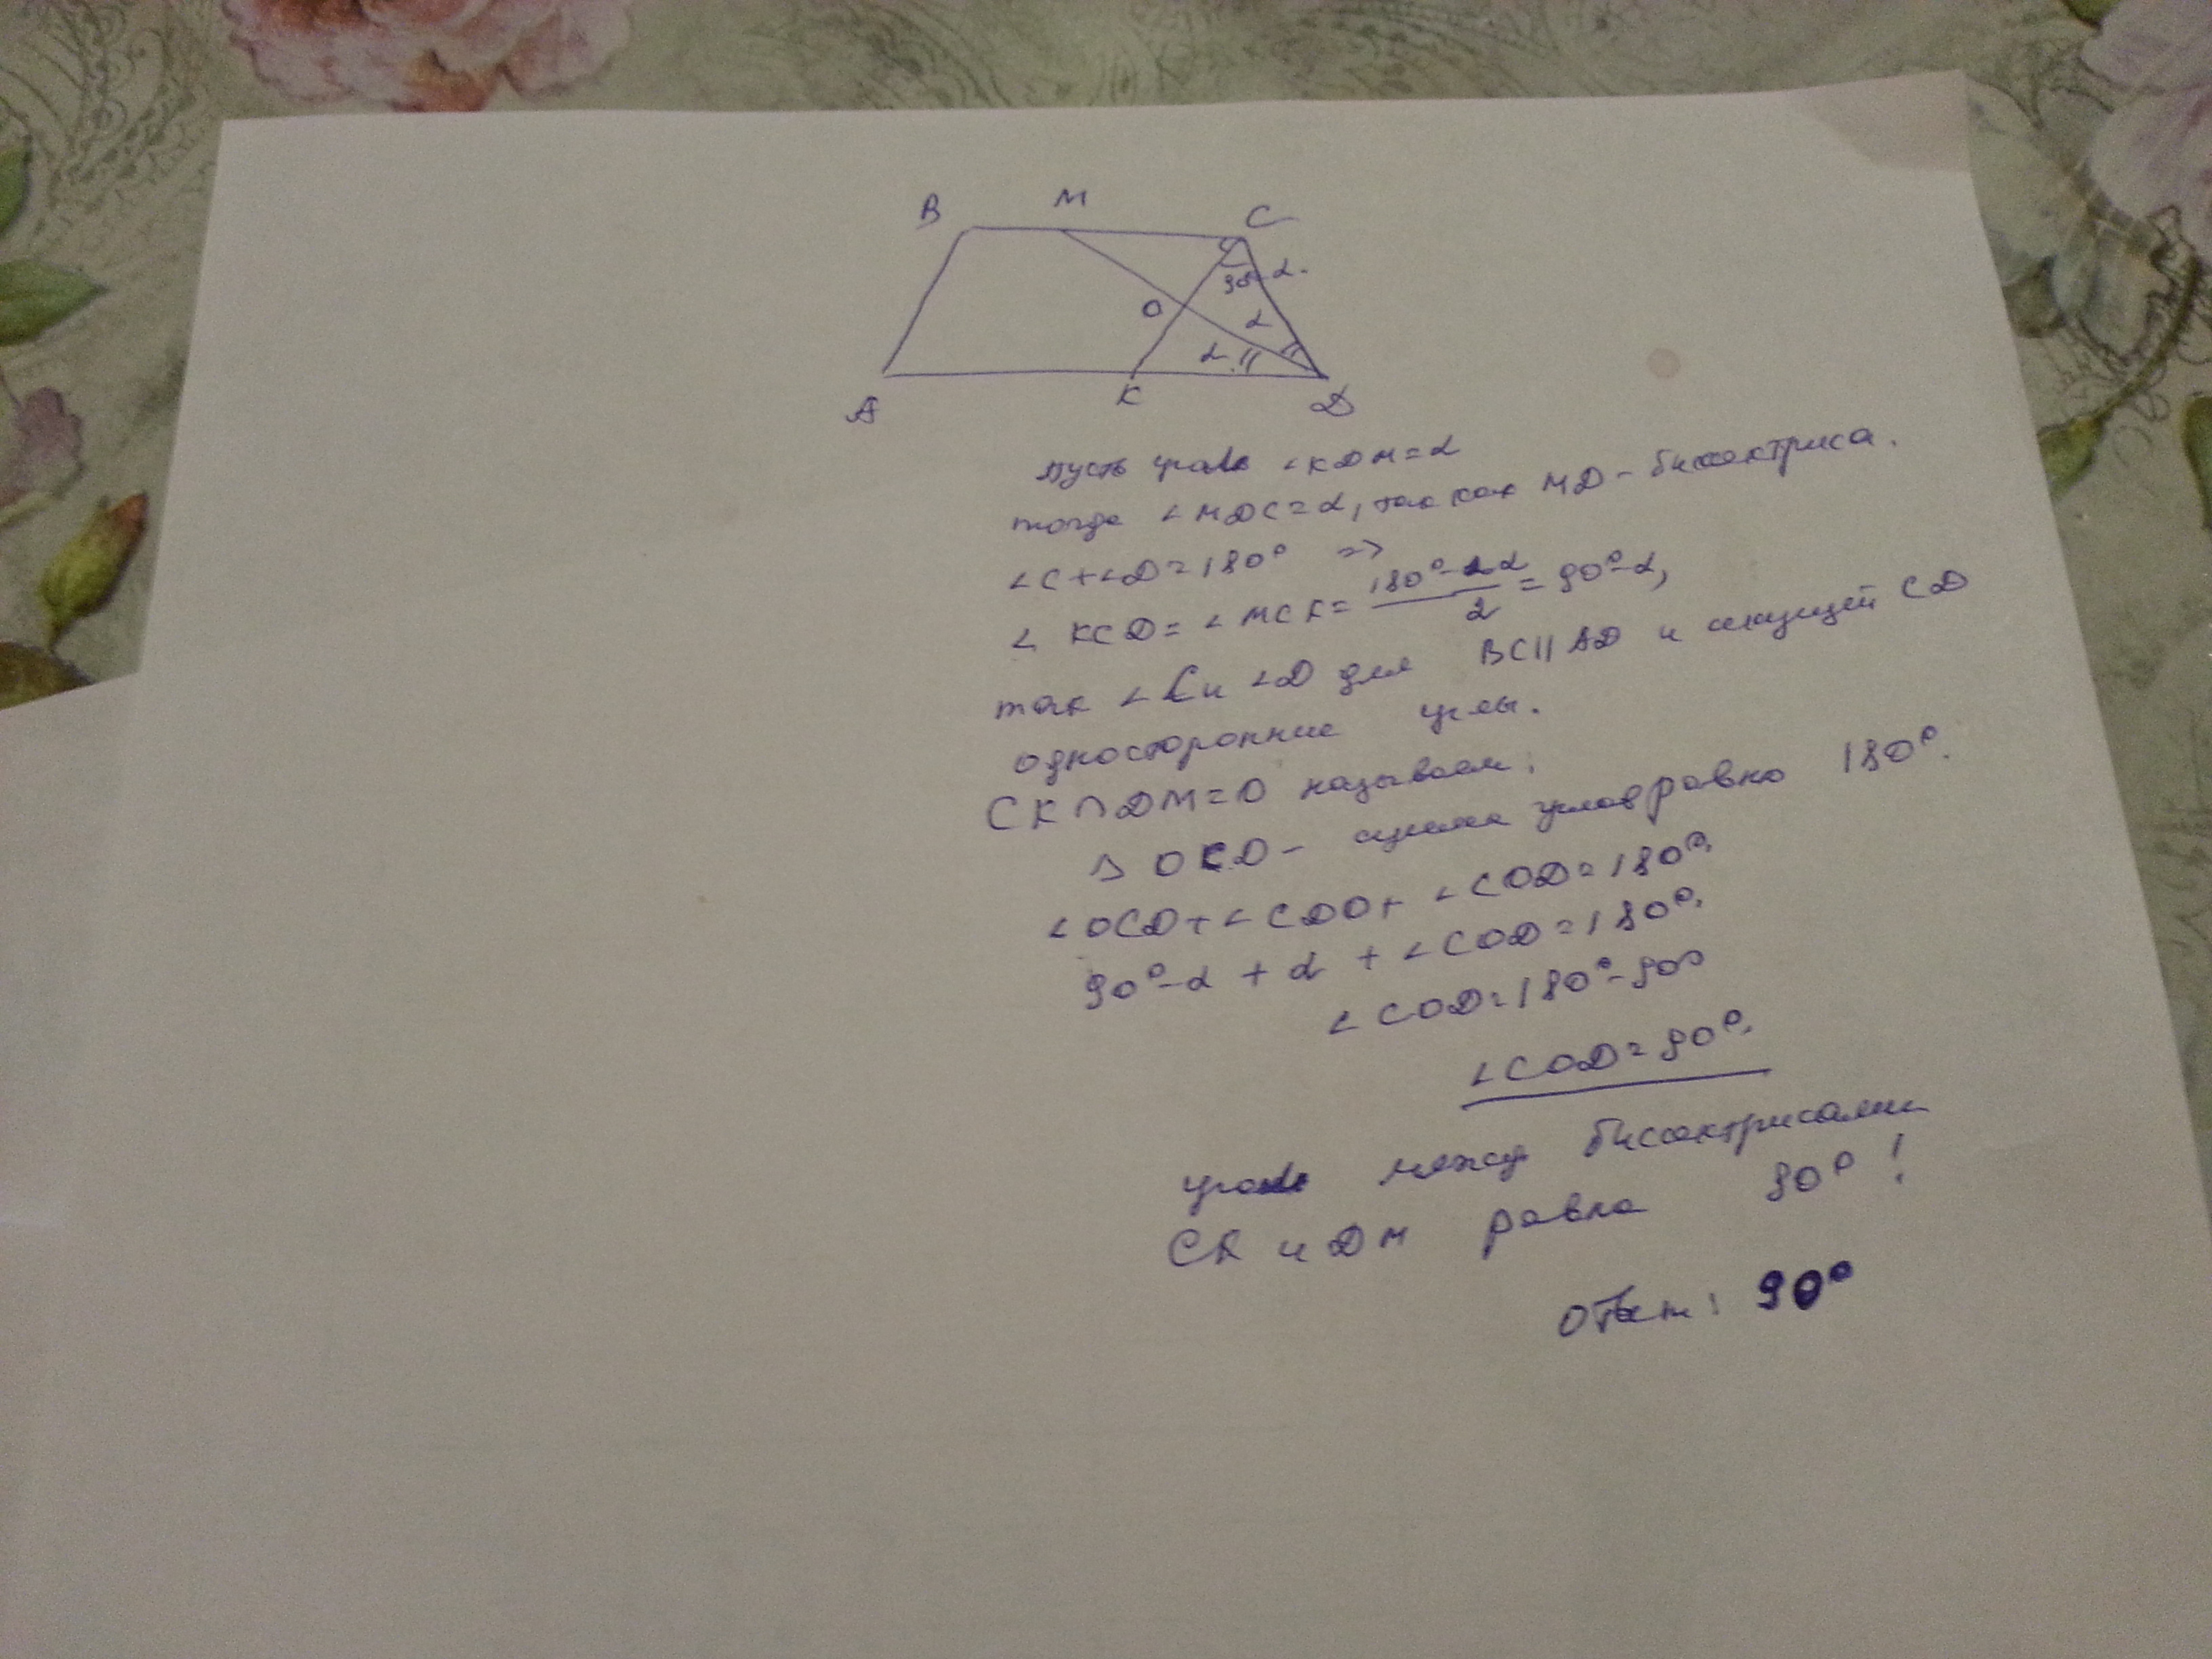 B M C
90°-α.
O α
α
A K D
Пусть угол ∠KDM=α
тогда ∠MDC=α, так как MD - биссектриса.
∠C+∠D=180° =>
∠KCD=∠MCK= (180°-2α)/2 = 90°-α,
так ∠C и ∠D для BC||AD и секущей CD
односторонние углы.
CK∩DM=O называем.
Δ OCD - сумма углов равна 180°.
∠OCD+∠CDO+∠COD=180°.
90°-α + α + ∠COD=180°.
∠COD=180°-90°
∠COD=90°.
угол между биссектрисами
CK и DM равна 90°!
Ответ: 90°